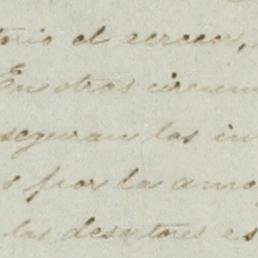 torio el cercen,
En otras circun
seguran los in
s por la amo
las desertores es